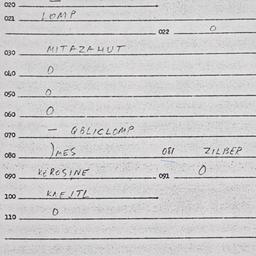 020
021 LOMP
022 0
030 MITAZAHUT
040 0
050 0
060 0
070 — QBLICLOMP
080 JMES 081 ZILBER
090 KEROSINE 091 0
100
110 0